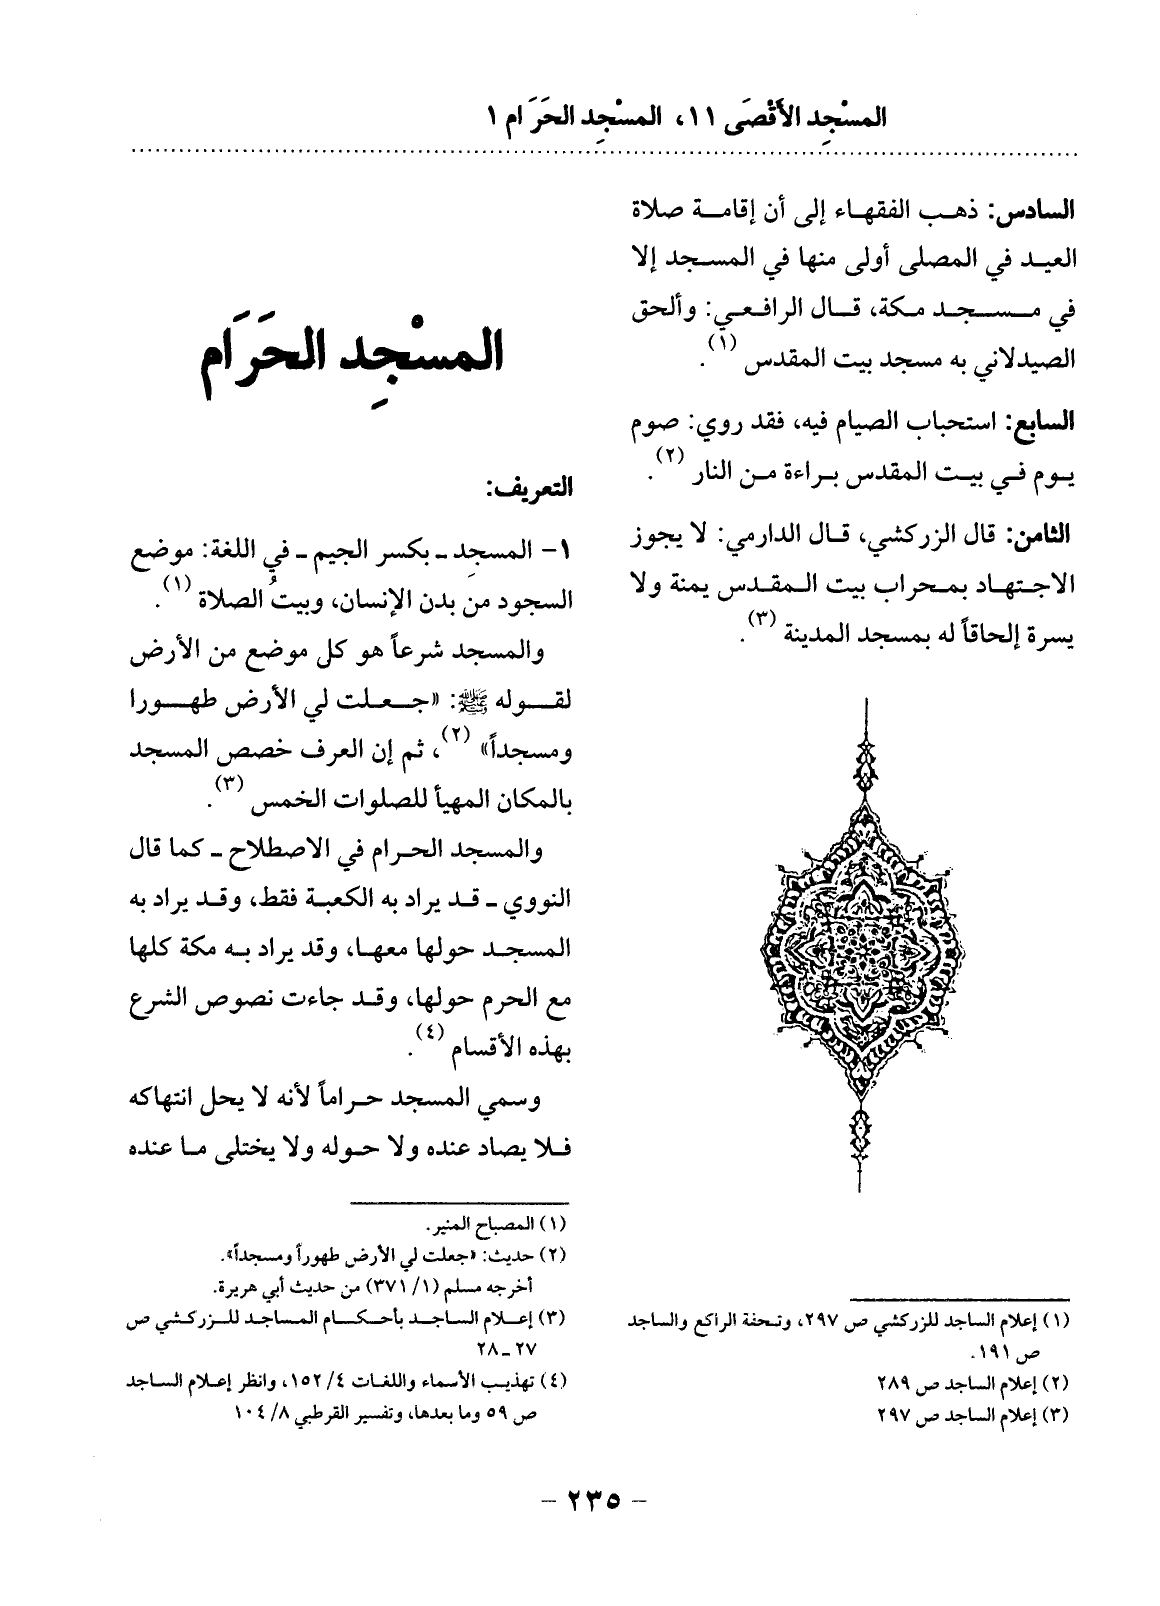 المسْجِد الأَقْصَى ١١، المسْجِد الحَرَام ١
السادس: ذهب الفقهاء إلى أن إقامة صلاة
العيد في المصلى أولى منها في المسجد إلا
في مسجد مكة، قال الرافعي: وألحق
الصيدلاني به مسجد بيت المقدس (١).
السابع: استحباب الصيام فيه، فقد روي: صوم
يوم في بيت المقدس براءة من النار (٢).
الثامن: قال الزركشي، قال الدارمي: لا يجوز
الاجتهاد بمحراب بيت المقدس يمنة ولا
يسرة إلحاقاً له بمسجد المدينة (٣).
(١) إعلام الساجد للزركشي ص ٢٩٧، وتحفة الراكع والساجد
ص ١٩١.
(٢) إعلام الساجد ص ٢٨٩
(٣) إعلام الساجد ص ٢٩٧
المسْجِد الحَرَام
التعريف:
١- المسجِد ـ بكسر الجيم ـ في اللغة: موضع
السجود من بدن الإنسان، وبيتُ الصلاة (١).
والمسجد شرعاً هو كل موضع من الأرض
لقوله ﷺ: «جعلت لي الأرض طهورا
ومسجداً» (٢)، ثم إن العرف خصص المسجد
بالمكان المهيأ للصلوات الخمس (٣).
والمسجد الحرام في الاصطلاح ـ كما قال
النووي ـ قد يراد به الكعبة فقط، وقد يراد به
المسجد حولها معها، وقد يراد به مكة كلها
مع الحرم حولها، وقد جاءت نصوص الشرع
بهذه الأقسام (٤).
وسمي المسجد حراماً لأنه لا يحل انتهاكه
فلا يصاد عنده ولا حوله ولا يختلى ما عنده
(١) المصباح المنير.
(٢) حديث: «جعلت لي الأرض طهوراً ومسجداً».
أخرجه مسلم (١/ ٣٧١) من حديث أبي هريرة.
(٣) إعلام الساجد بأحكام المساجد للزركشي ص
٢٧ ـ ٢٨
(٤) تهذيب الأسماء واللغات ٤/ ١٥٢، وانظر إعلام الساجد
ص ٥٩ وما بعدها، وتفسير القرطبي ٨/ ١٠٤
- ٢٣٥ -